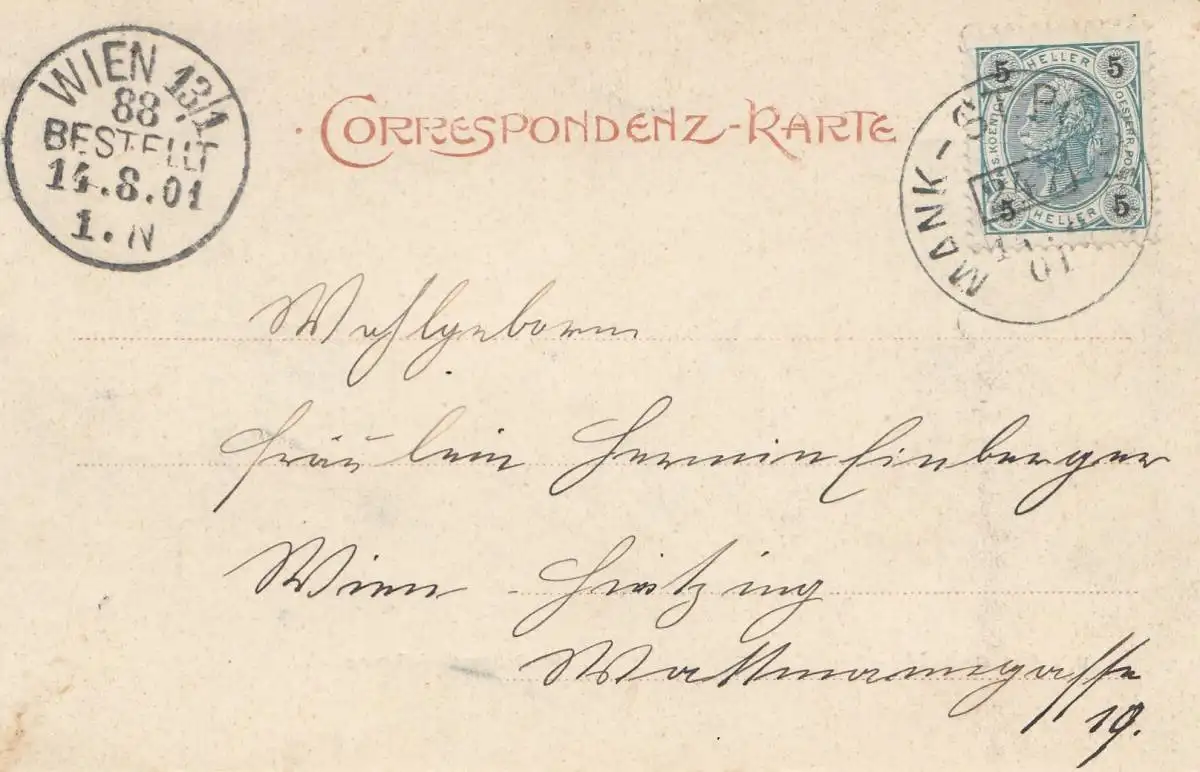 WIEN 13/1
88
BESTELLT
14.8.01
1. N
CORRESPONDENZ-KARTE
5 HELLER 5
5 HELLER 5
MANK-
01
Wohlgeboren
Fräulein Hermin Einberger
Wien - Hietzing
Wattmanngasse
19.